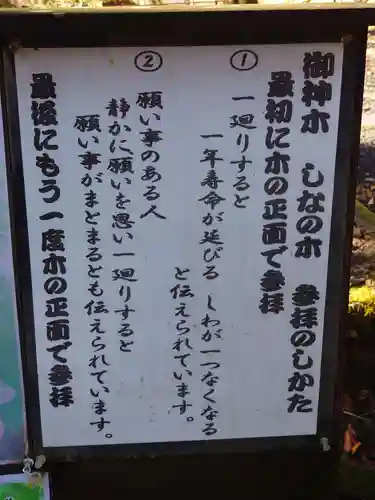 御神木 しなの木 参拝のしかた
最初に木の正面で参拝
①
一廻りすると
一年寿命が延びる しわが一つなくなる
と伝えられています。
②
願い事のある人
静かに願いを思い一廻りすると
願い事がまとまるとも伝えられています。
最後にもう一度木の正面で参拝